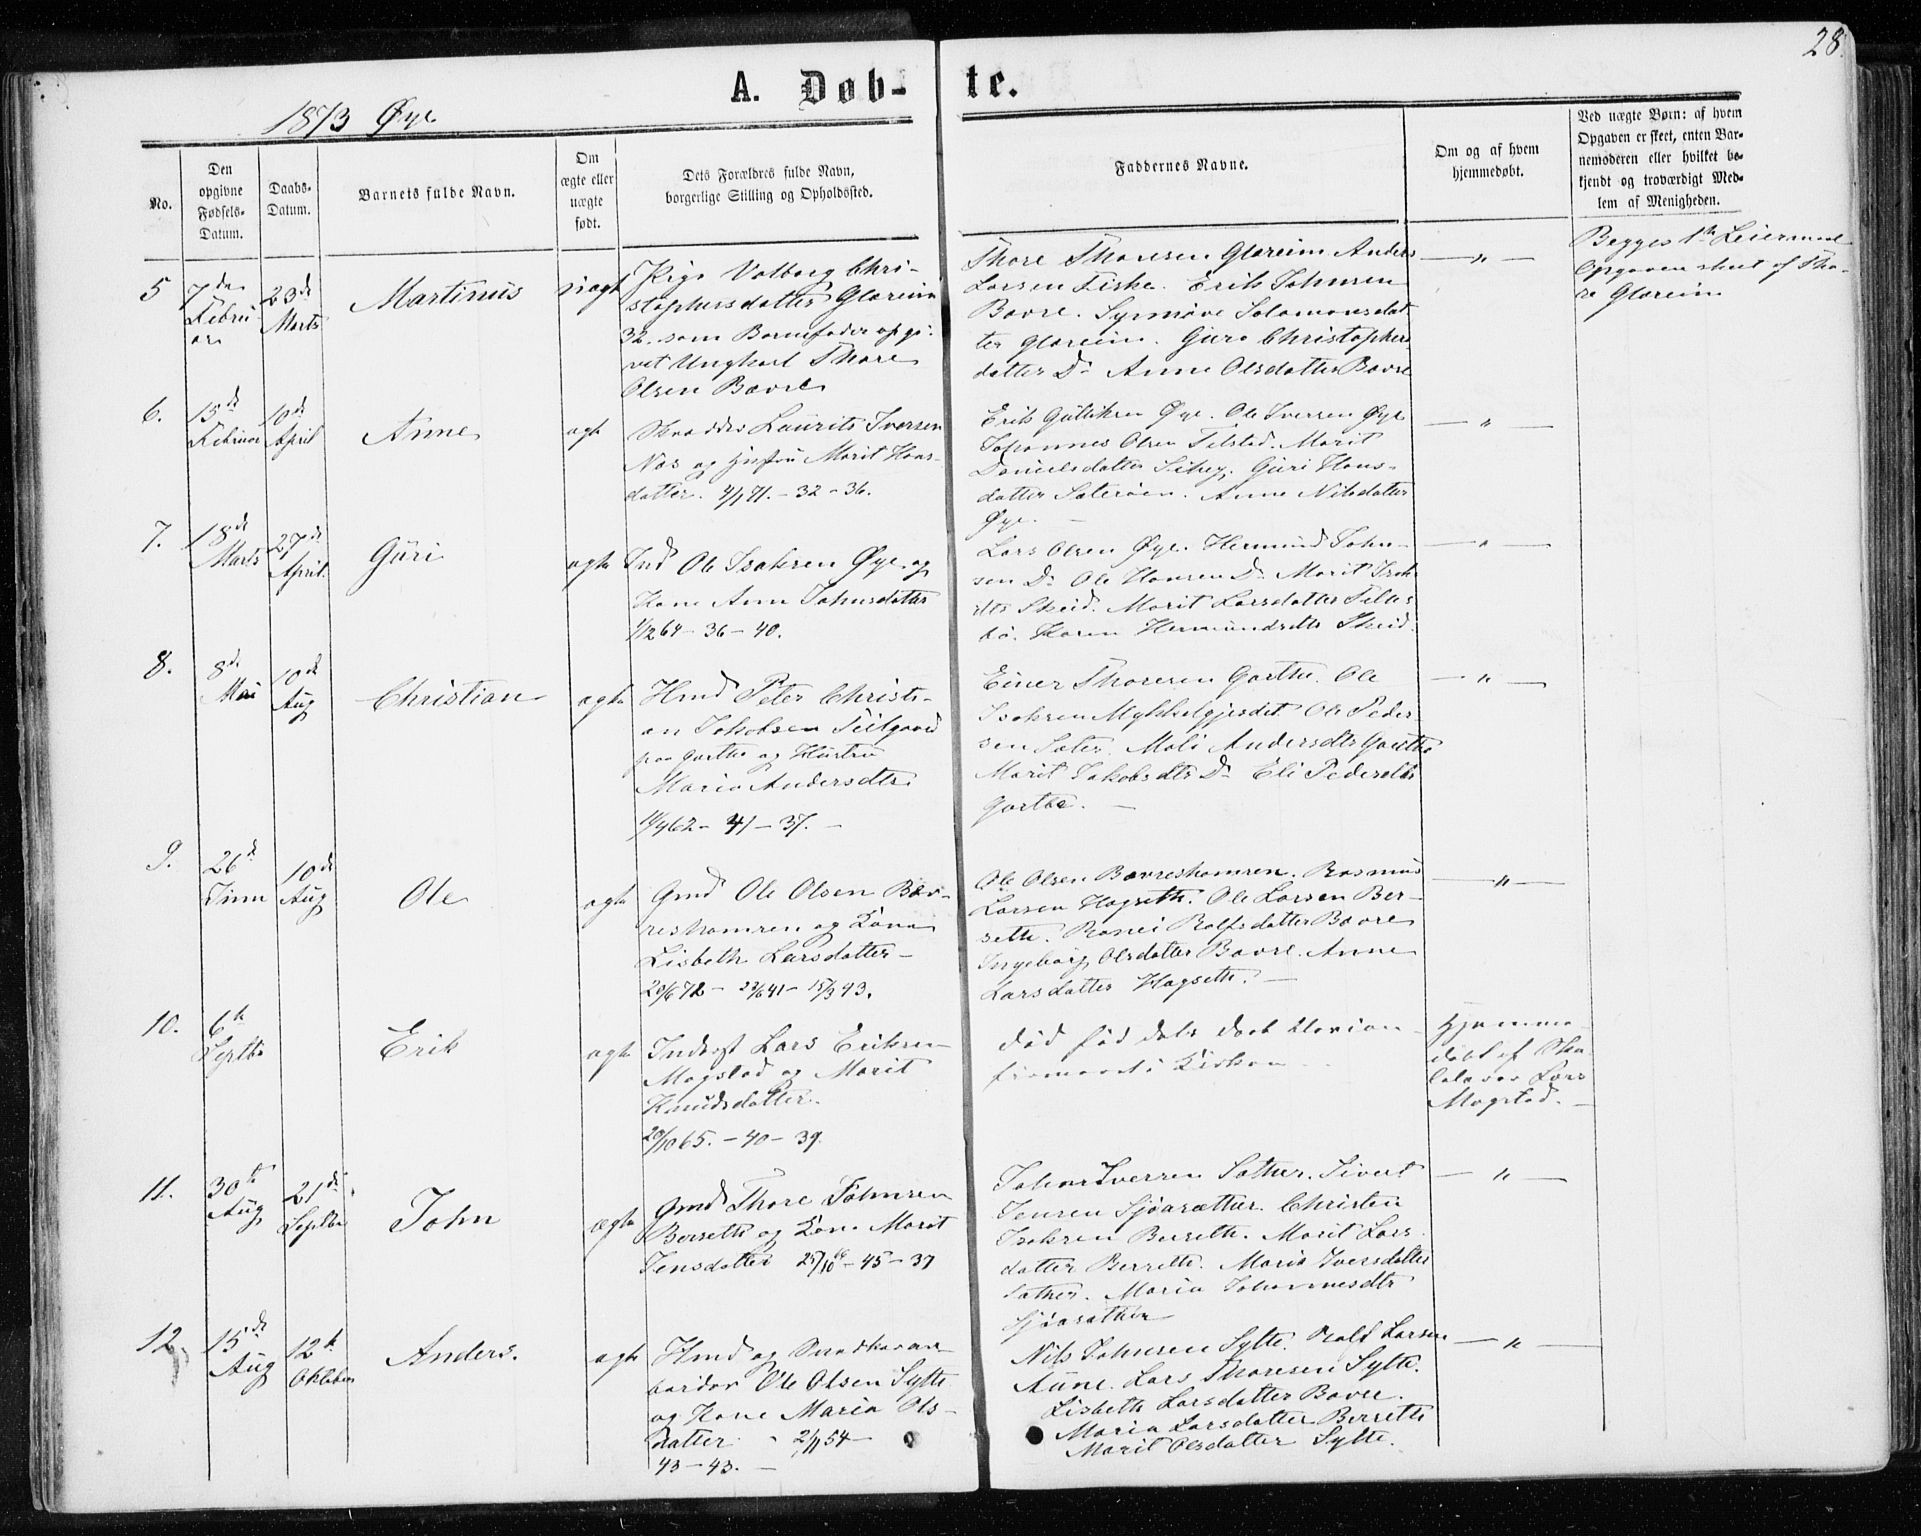 28.
A. Døb- te.
1873 Øye
No.
Den opgivne Fødsels-Datum.
Daabs-Datum.
Barnets fulde Navn.
Om ægte eller uægte født.
Dets Forældres fulde Navn, borgerlige Stilling og Opholdssted.
Faddernes Navne.
Om og af hvem hjemmedøbt.
Ved uægte Børn: af hvem
Opgaven er skeet, enten Bar-
nemoderen eller hvilket be-
kjendt og troværdigt Med-
lem af Menigheden.
5 7de Februar 23de Marts Martinus uægt
Pige Valborg Chri-
stophersdatter Glæreim
32. som Barnefader opgi-
vet Ungkarl Thore
Olsen Bævre
Thore Thoresen Glæreim Anders
Larsen Fiske. Erik Johnsen
Bævre. Synnøve Salomonsdat
ter Glæreim. Guro Christophers
datter Do Anne Olsdatter Bævre
— " —
Begges 1ste Leiermaal
Opgaven skeet af Tho-
re Glæreim
6. 15de Februar 10de April Anne ægte
Skrædder Laurits Iversen
Næs og Hustru Marit Hans-
datter. 4/1 71. - 32 - 36.
Erik Gulliksen Øye. Ole Iversen Øye
Johannes Olsen Telstad. Marit
Danielsdatter . Guri Hans-
datter Sæterøen. Anne Nilsdatter
Øye. —
— " —
7. 18de Marts 27de April. Guri ægte
Ind Ole Isaksen Øye og
Kone Anne Johnsdatter
1/12 64 - 36 - 40.
Lars Olsen Øye. Hermund John-
sen Do Ole Hansen Do Marit Isak
dtr Skeid. Marit Larsdatter
bø. Karen Hermundsdtr Skeid.
— " —
8. 8de Mai 10de Aug Christian ægte
Hmd Peter Christi-
an Jakobsen
paa Garthe og Hustru
Maria Andersdtr
62 - 41 - 37. —
Einer Thoresen Garthe. Ole
Isaksen Mykkelgjerdet Ole Peder-
sen Sæter. Mali Andersdtr Garthe
Marit Jakobsdtr Do Eli Pedersdtr
Garthe. —
— " —
9. 26de Juni 10de Aug Ole ægte
Gmd Ole Olsen Bæv-
reshamren og Kone
Lisbeth Larsdatter —
20/6 72 - 23/6 41 - 15/3 43.
Ole Olsen Bævreshamren. Rasmus
Larsen Hagseth. Ole Larsen Ber-
seth. Ranei Rolfsdatter Bævre
Ingeborg Olsdatter Bævre. Anne
Larsdatter Hagseth. —
— " —
10. 6te Septbr Erik ægte
Inderst Lars Eriksen
Magstad og Marit
Knudsdatter.
20/10 65. - 40 - 39.
død før dets Daab
i Kirken
Hjemme-
døbt af Sko-
lelærer Lars
Magstad. —
11. 30te Aug 21de Septbr John ægte
Gmd Thore Johnsen
Berseth og Kone Marit
Jensdatter 25/10 - 45 - 37
Johan Iversen Sæther. Sivert
Jensen Sjøasæther. Christen
Isaksen Berseth. Marit Lars-
datter Berseth. Maria Iversdatter
Sæther. Maria Johannesdtr
Sjøasæther
— " —
12. 15de Aug 12te Oktober Anders. ægte
Hmd og
Ole Olsen Sylte
og Kone Maria Ols-
datter 2/11 54 —
43 - 43. —
Nils Johnsen Sylte. Rolf Larsen
Aune. Lars Thoresen Sylte.
Lisbeth Larsdatter Bævre.
Maria Larsdatter Berseth
Marit Olsdatter Sylte.
— " —